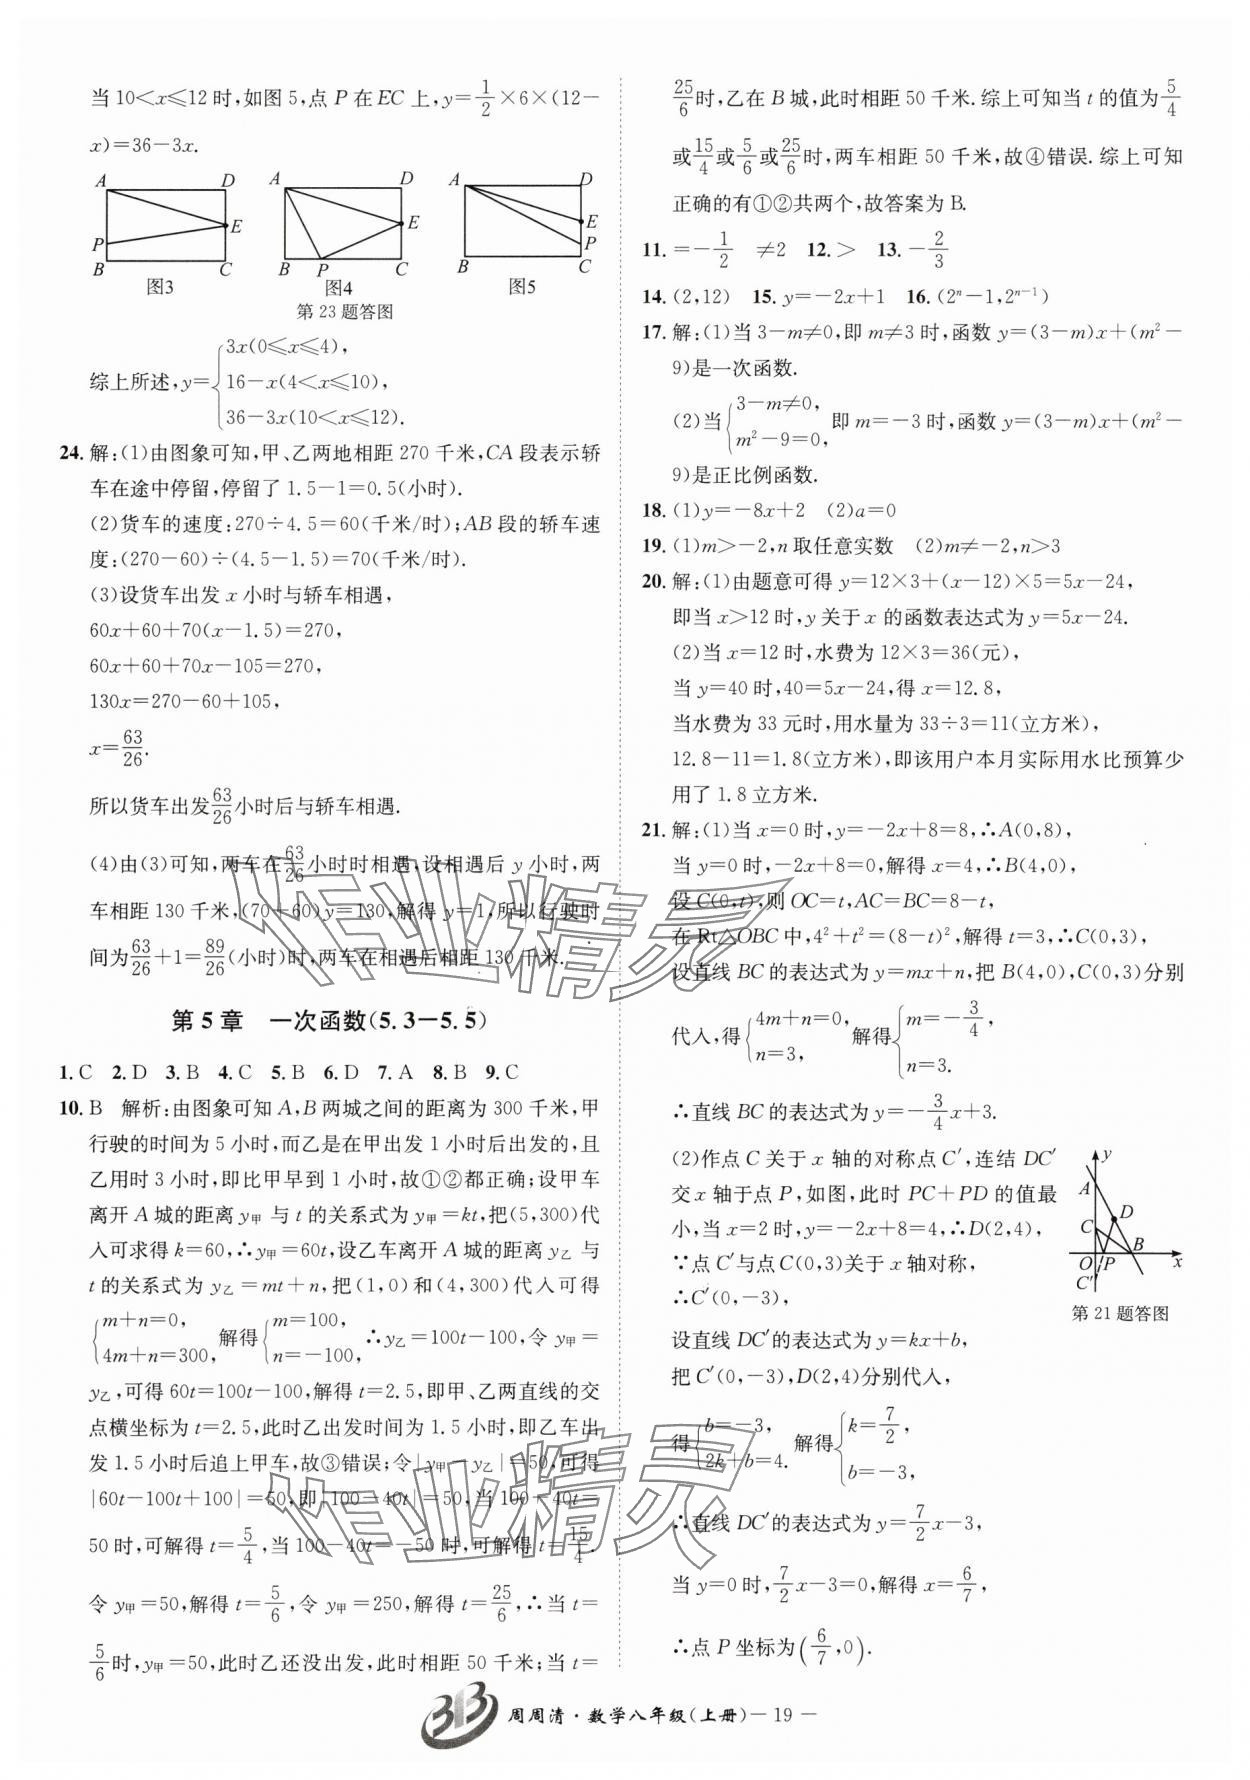 当 10<x≤12 时,如图 5,点 P 在 EC 上,y=1/2×6×(12-
x)=36-3x.
A D E P B C
图3
A D E B P C
图4
A D E P B C
图5
第 23 题答图
综上所述,y={3x(0≤x≤4),
16-x(4<x≤10),
36-3x(10<x≤12).
24. 解:(1)由图象可知,甲、乙两地相距 270 千米,CA 段表示轿
车在途中停留,停留了 1.5-1=0.5(小时).
(2)货车的速度:270÷4.5=60(千米/时);AB 段的轿车速
度:(270-60)÷(4.5-1.5)=70(千米/时).
(3)设货车出发 x 小时与轿车相遇,
60x+60+70(x-1.5)=270,
60x+60+70x-105=270,
130x=270-60+105,
x=63/26.
所以货车出发63/26小时后与轿车相遇.
(4)由(3)可知,两车在63/26小时时相遇,设相遇后 y 小时,两
车相距 130 千米,(70+60)y=130,解得 y=1,所以行驶时
间为63/26+1=89/26(小时)时,两车在相遇后相距 130 千米.
第 5 章 一次函数(5.3-5.5)
1. C 2. D 3. B 4. C 5. B 6. D 7. A 8. B 9. C
10. B 解析:由图象可知 A,B 两城之间的距离为 300 千米,甲
行驶的时间为 5 小时,而乙是在甲出发 1 小时后出发的,且
乙用时 3 小时,即比甲早到 1 小时,故①②都正确;设甲车
离开 A 城的距离 y甲 与 t 的关系式为 y甲=kt,把(5,300)代
入可求得 k=60,∴y甲=60t,设乙车离开 A 城的距离 y乙 与
t 的关系式为 y乙=mt+n,把(1,0)和(4,300)代入可得
{m+n=0, 4m+n=300, 解得{m=100, n=-100, ∴y乙=100t-100,令 y甲=
y乙,可得 60t=100t-100,解得 t=2.5,即甲、乙两直线的交
点横坐标为 t=2.5,此时乙出发时间为 1.5 小时,即乙车出
发 1.5 小时后追上甲车,故③错误;令|y甲-y乙|=50,可得
|60t-100t+100|=50,即|100-40t|=50,当 100-40t=
50 时,可解得 t=5/4,当 100-40t=-50 时,可解得 t=15/4.
令 y甲=50,解得 t=5/6,令 y甲=250,解得 t=25/6,∴当 t=
5/6时,y甲=50,此时乙还没出发,此时相距 50 千米;当 t=
25/6时,乙在 B 城,此时相距 50 千米.综上可知当 t 的值为5/4
或15/4或5/6或25/6时,两车相距 50 千米,故④错误.综上可知
正确的有①②共两个,故答案为 B.
11. =-1/2 ≠2 12. > 13. -2/3
14. (2,12) 15. y=-2x+1 16. (2ⁿ-1,2ⁿ⁻¹)
17. 解:(1)当 3-m≠0,即 m≠3 时,函数 y=(3-m)x+(m²-
9)是一次函数.
(2)当{3-m≠0, m²-9=0, 即 m=-3 时,函数 y=(3-m)x+(m²-
9)是正比例函数.
18. (1)y=-8x+2 (2)a=0
19. (1)m>-2,n 取任意实数 (2)m≠-2,n>3
20. 解:(1)由题意可得 y=12×3+(x-12)×5=5x-24,
即当 x>12 时,y 关于 x 的函数表达式为 y=5x-24.
(2)当 x=12 时,水费为 12×3=36(元),
当 y=40 时,40=5x-24,得 x=12.8,
当水费为 33 元时,用水量为 33÷3=11(立方米),
12.8-11=1.8(立方米),即该用户本月实际用水比预算少
用了 1.8 立方米.
21. 解:(1)当 x=0 时,y=-2x+8=8,∴A(0,8),
当 y=0 时,-2x+8=0,解得 x=4,∴B(4,0),
设 C(0,t),则 OC=t,AC=BC=8-t,
在 Rt△OBC 中,4²+t²=(8-t)²,解得 t=3,∴C(0,3),
设直线 BC 的表达式为 y=mx+n,把 B(4,0),C(0,3)分别
代入,得{4m+n=0, n=3, 解得{m=-3/4, n=3.
∴直线 BC 的表达式为 y=-3/4x+3.
(2)作点 C 关于 x 轴的对称点 C′,连结 DC′
交 x 轴于点 P,如图,此时 PC+PD 的值最
小,当 x=2 时,y=-2x+8=4,∴D(2,4),
∵点 C′与点 C(0,3)关于 x 轴对称,
∴C′(0,-3),
y A D C B O P x C′
第 21 题答图
设直线 DC′的表达式为 y=kx+b,
把 C′(0,-3),D(2,4)分别代入,
得{b=-3, 2k+b=4. 解得{k=7/2, b=-3,
∴直线 DC′的表达式为 y=7/2x-3,
当 y=0 时,7/2x-3=0,解得 x=6/7,
∴点 P 坐标为(6/7,0).
周周清·数学八年级(上册)— 19 —
作业精灵
作业精灵